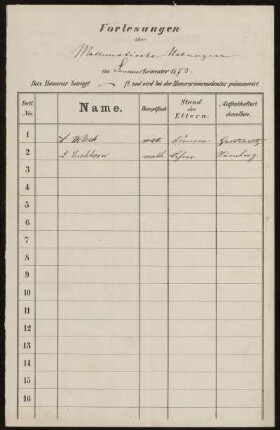 Vorlesungen
über
Mathematische Uebungen
im Sommersemester 1873.
Das Honorar beträgt — fl. und wird bei der Honorarienredantur pränumerirt.
Fortl. No. Name. Hauptfach Stand der Eltern. Aufenthaltsort derselben.
1 math.
2 L. Eichhorn math. Lehrer Nürnberg
3
4
5
6
7
8
9
10
11
12
13
14
15
16